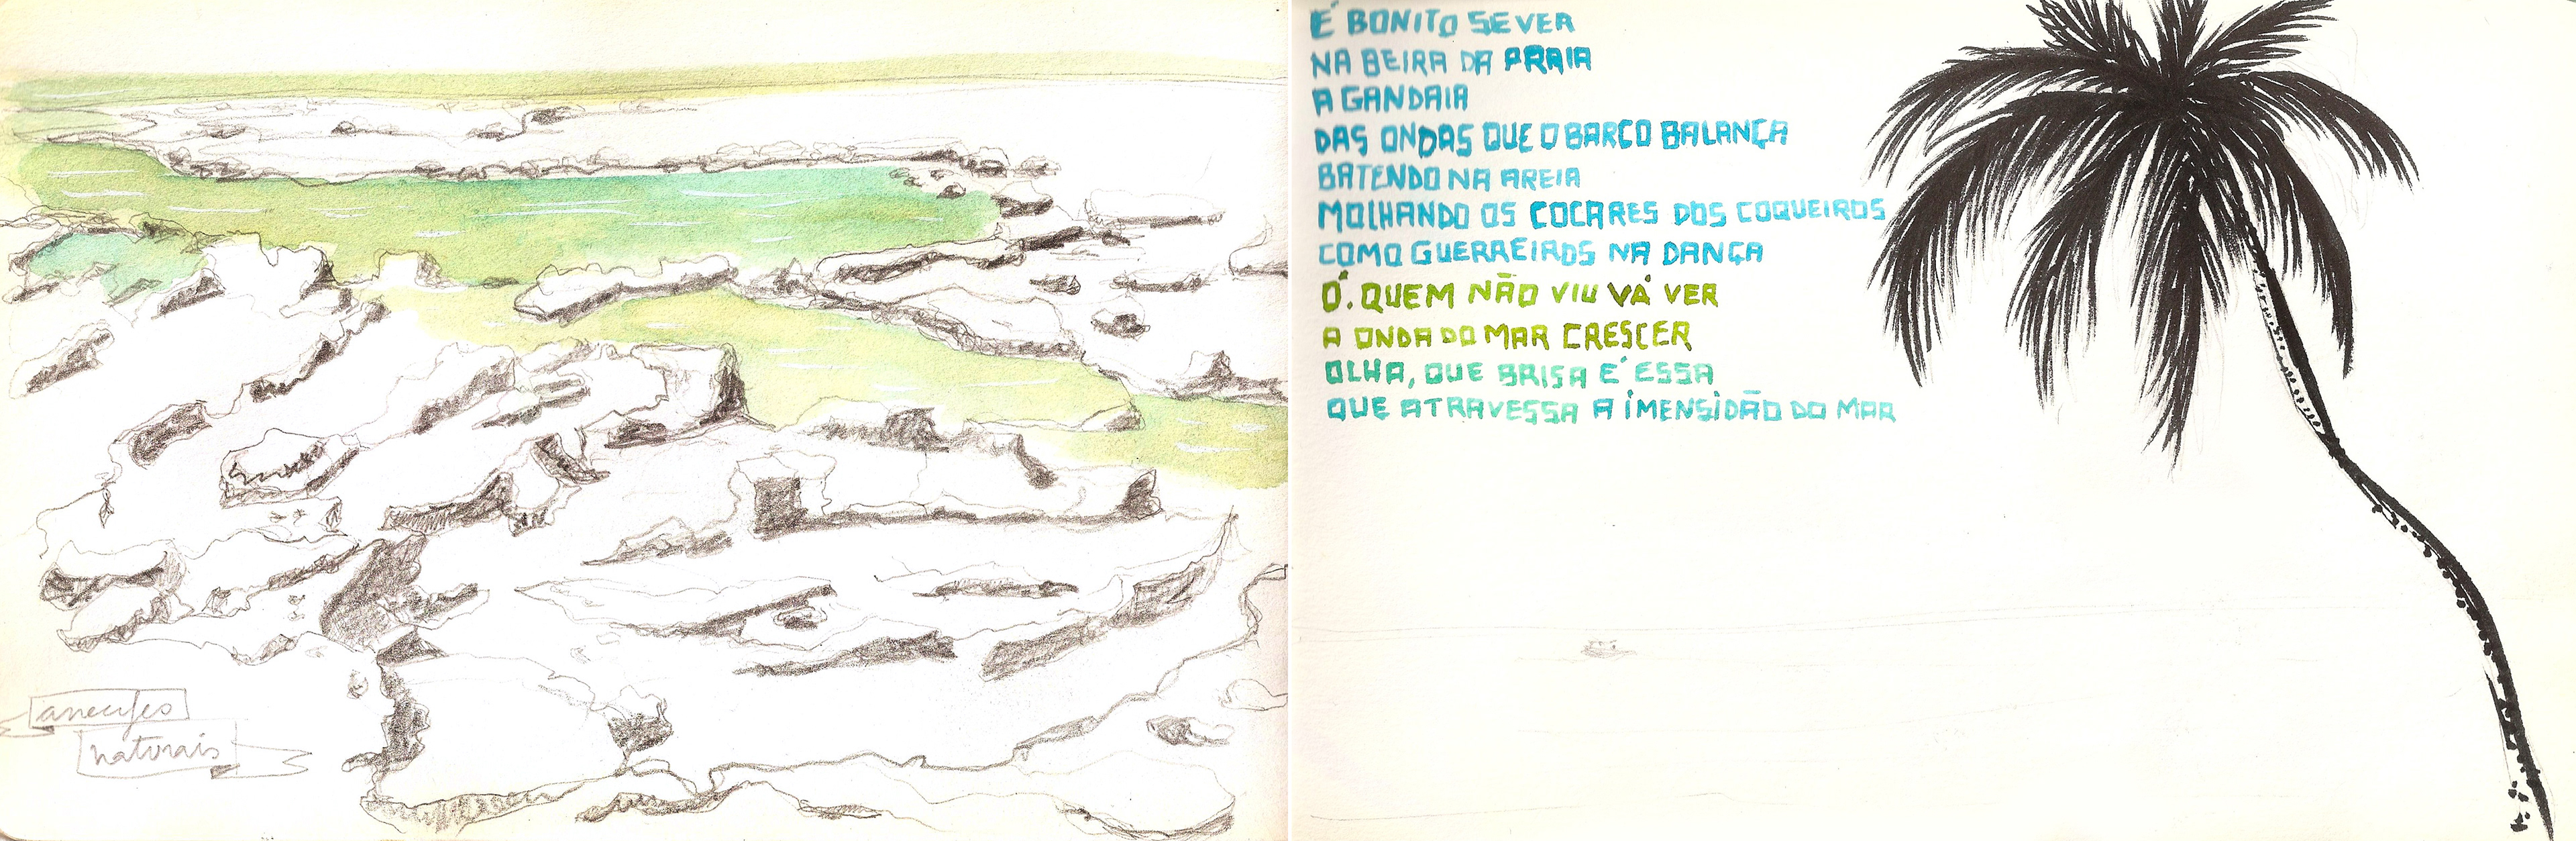 arrecifes
naturais
É BONITO SE VER
NA BEIRA DA PRAIA
A GANDAIA
DAS ONDAS QUE O BARCO BALANÇA
BATENDO NA AREIA
MOLHANDO OS COCARES DOS COQUEIROS
COMO GUERREIROS NA DANÇA
Ó. QUEM NÃO VIU VÁ VER
A ONDA DO MAR CRESCER
OLHA, QUE BRISA É ESSA
QUE ATRAVESSA A IMENSIDÃO DO MAR